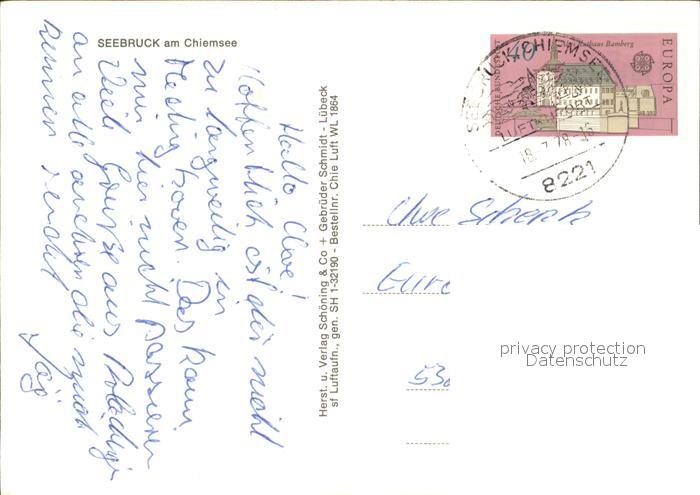 SEEBRUCK am Chiemsee
Hallo Uwe!
Hoffentlich ist dir nicht
zu langweilig in
Das kann
mir hier nicht passieren
Viele Grüsse aus
an alle anderen die
kennen
Herst. u. Verlag Schöning & Co + Gebrüder Schmidt - Lübeck
sf Luftaufn., gen. SH 1-32190 - Bestellnr. Chie Luft WL 1864
40
Rathaus Bamberg
EUROPA
DEUTSCHE BUNDESPOST
SEEBRUCK, CHIEMSEE
LUFT
18.7.78-15
8221
Uwe
Euro
530
privacy protection
Datenschutz